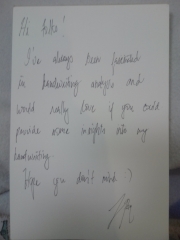 Hi
I've always been fascinated
in handwriting analysis and
would really love if you could
provide some insights into my
handwriting.
Hope you don't mind?